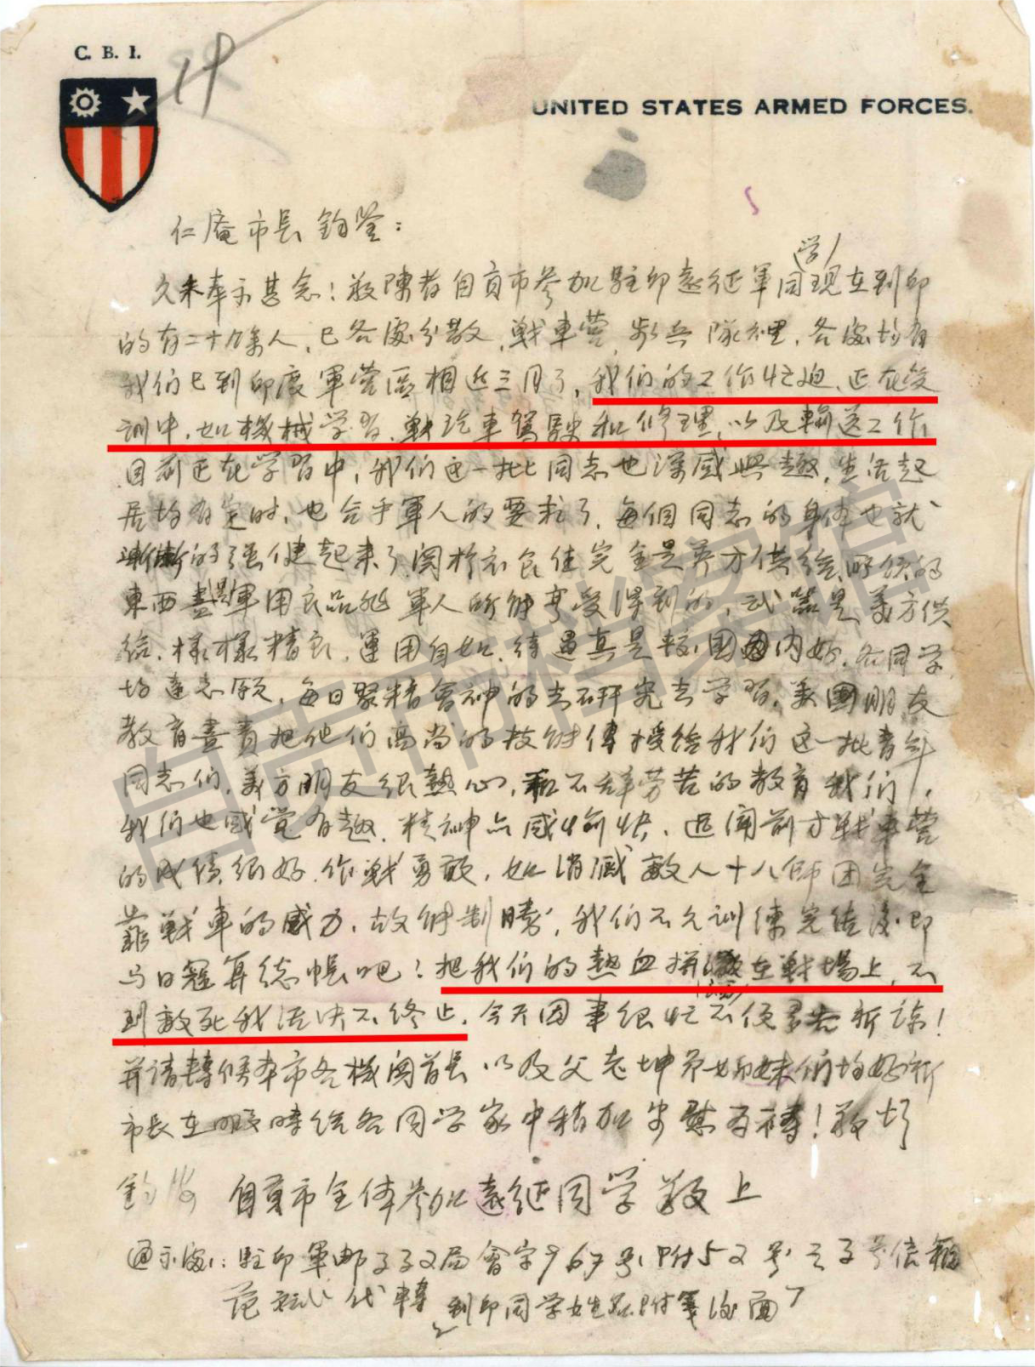 C. B. I.
UNITED STATES ARMED FORCES.
仁庵市長鈞鑒：
久未奉示甚念！敬陳者自貢市參加駐印遠征軍同學現在到印
的有二十餘人，已各處分散，戰車營，步兵隊裡，各處均有
我们已到印度軍營區相近三月了，我们的工作忙迫，正在受
訓中，如機械学習，戰汽車駕駛和修理，以及輸送工作
目前正在学習中，我们这一批同志也深感興趣，生活起
居均有定时，也合乎軍人的要求了，每個同志的身体也就
漸漸的强健起来了，関於衣食住完全是英方供给，所给的
東西盡是軍用良品，軍人所能享受得到的，武器是美方供
给，樣樣精良，運用自如，待遇真是較國内好，各同学
均達志願，每日聚精會神的去研究去学習，美國朋友
教育盡責把他们高尚的技能傳授给我们这一批青年
同志们，美方朋友很熱心，和不辞劳苦的教育我们，
我们也感覚有趣，精神亦感愉快，近聞前方戰車營
的成绩很好，作戰勇敢，如消滅敵人十八师團完全
靠戰車的威力，故能制勝，我们不久訓練完後即
与日寇算總帳吧！把我们的熱血拼灑在戰場上，不
到敵死我活决不终止，今天因事很忙不便多告祈諒！
并请轉候本市各機関首長以及父老坤弟姊妹们均好祈
市長在暇時给各同学家中稍加安慰為禱！敬颂
鈞安 自貢市全体參加遠征同学敬上
通示處：駐印軍邮 局會字 號附 號 號信箱
范 代轉 到印同学姓名附 後面
自贡市档案馆